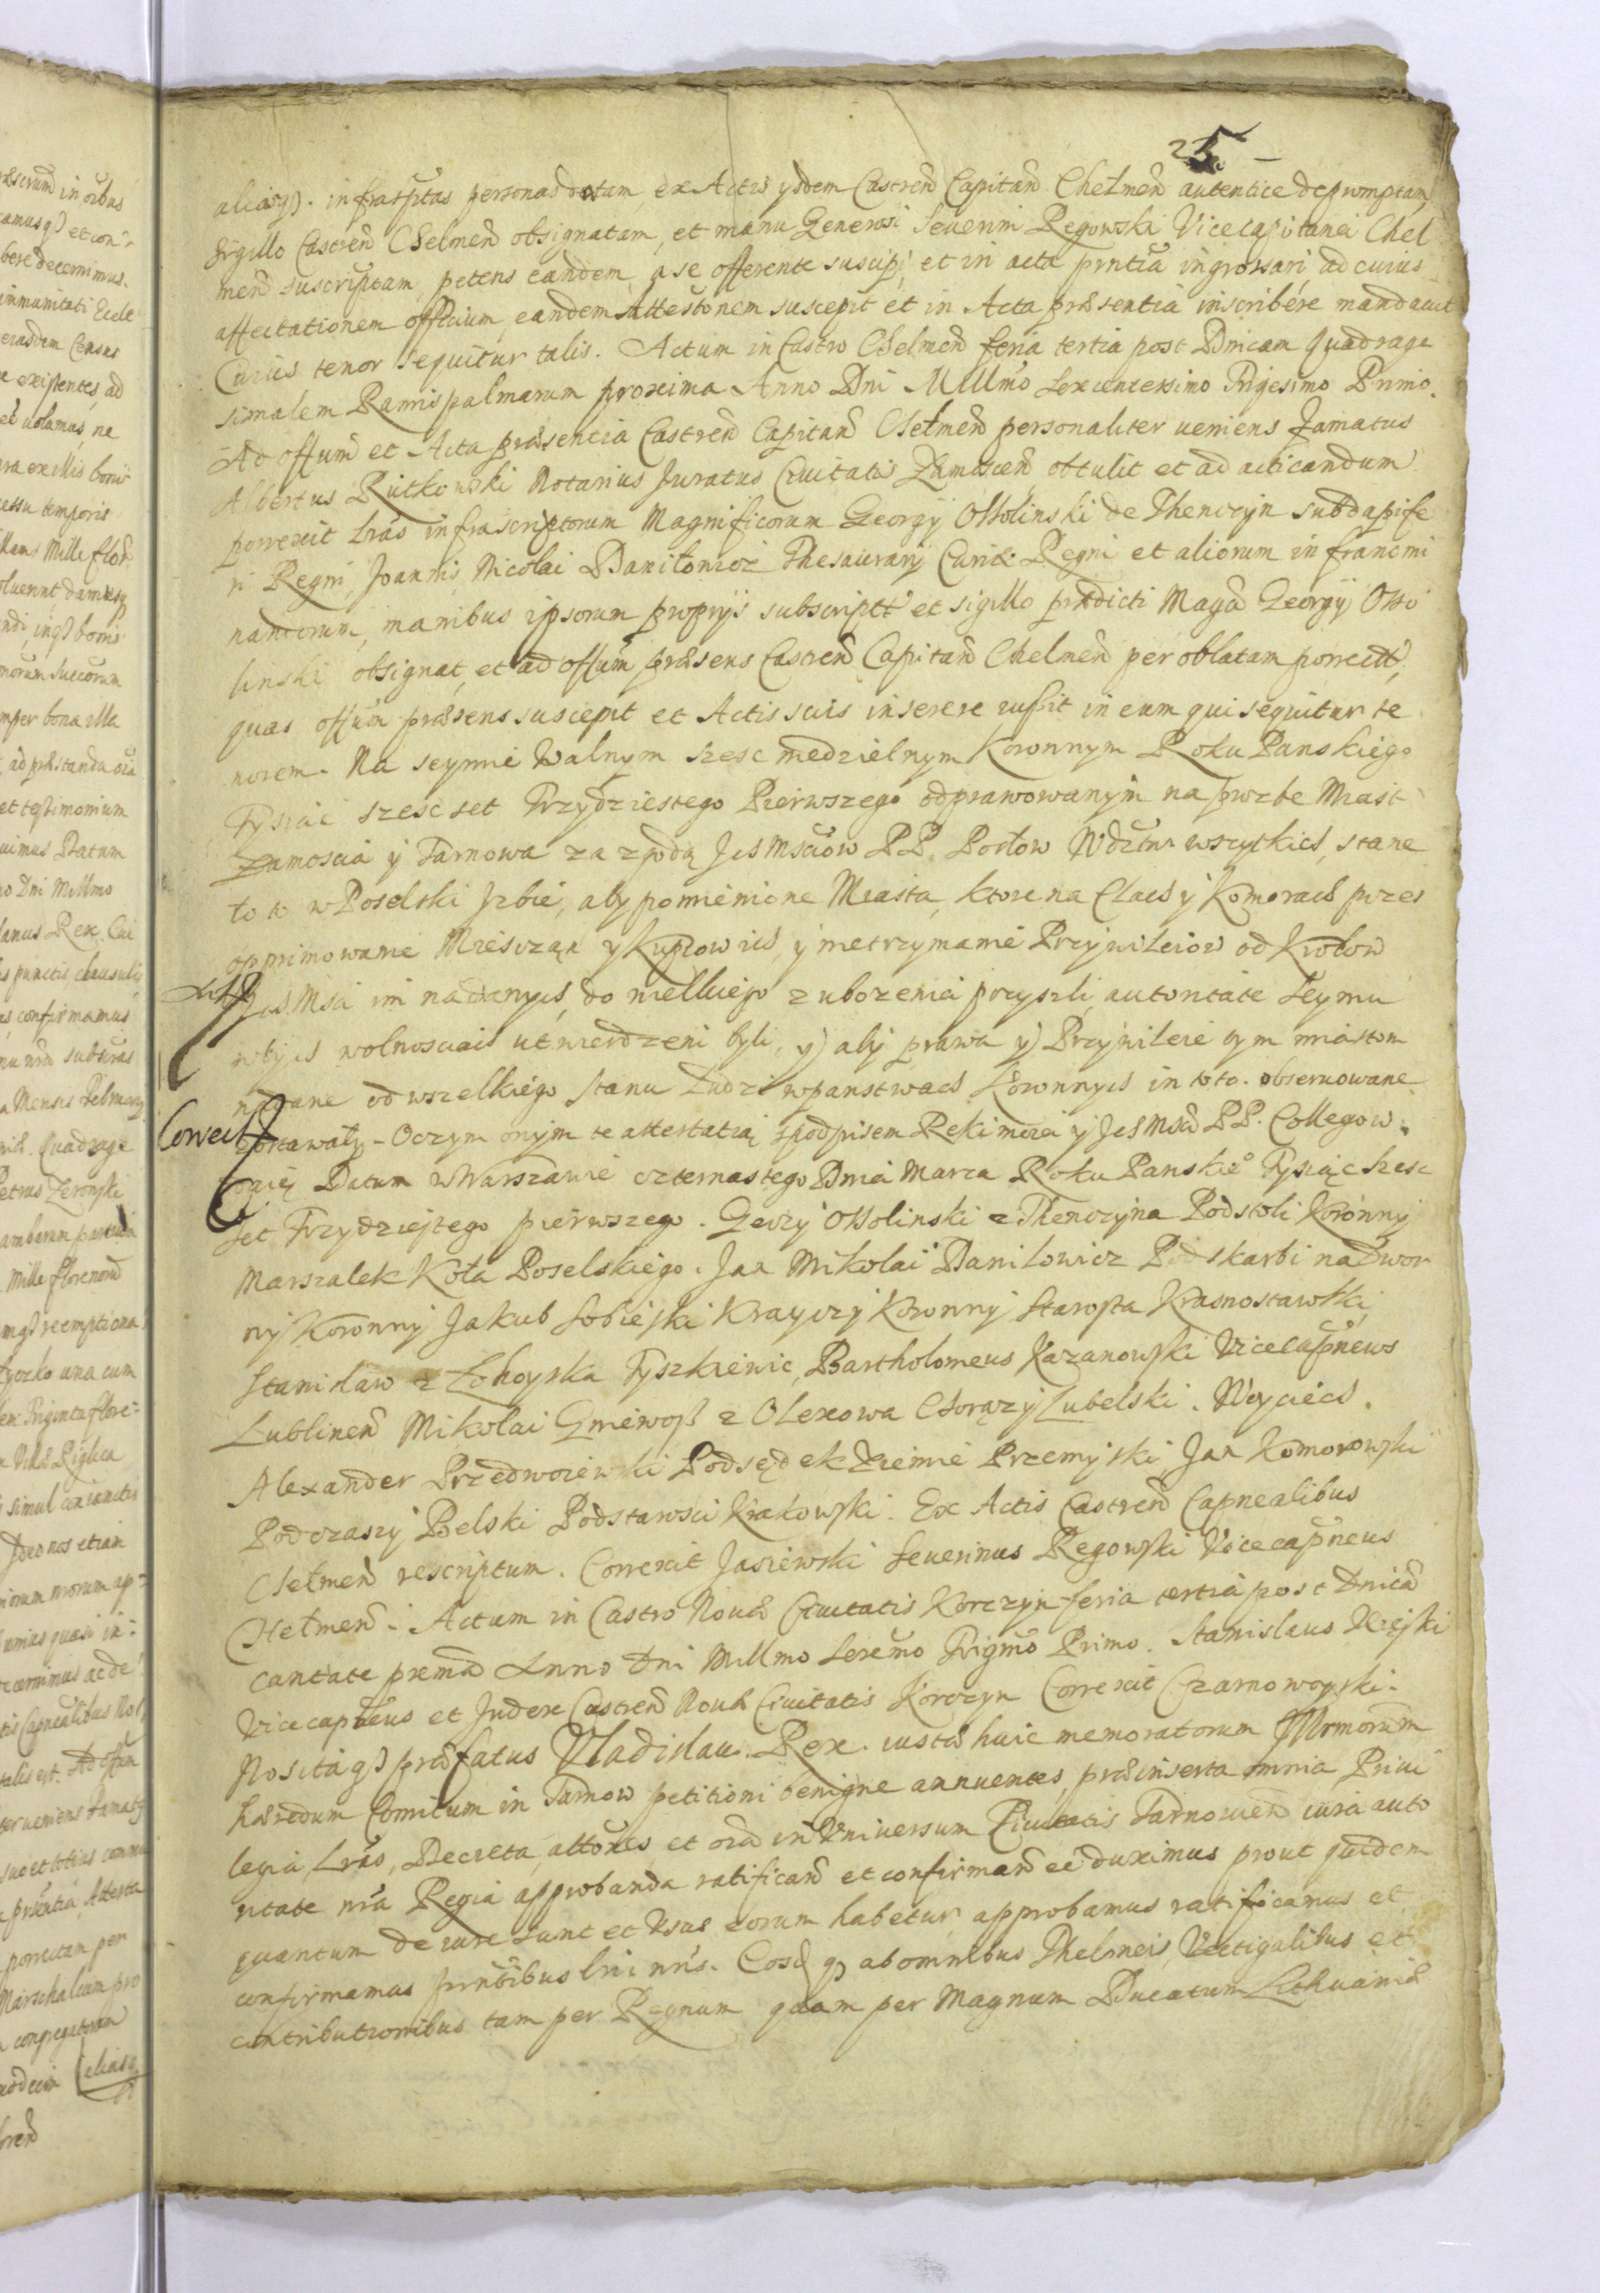 25
aliasq3. infrascriptas personas datam, ex Actis ysdem Castren Capitan Chelmen autentice depromptam
Sigillo Castren Chelmen obsignatam, et manu Generosi Seuerini Regowski Vicecapitanei Chel
men suscriptam, petens eandem a se offerente suscipi, et in acta pntia ingrossari, ad cuius
affectationem officium, eandem Attestonem suscepit et in Acta præsentia inscribere mandauit
Cuius tenor sequitur talis. Actum in Castro Chelmen feria tertia post Dnicam Quadrage
simalem Ramispalmarum proxima Anno Dni Millmo Sexcentesimo Trigesimo Primo.
Ad offum et Acta præsencia Castren Capitan Chelmen personaliter ueniens Famatus
Albertus Rutkowski Notarius Juratus Ciuitatis Zamoscen obtulit et ad acticandum
porrexit Lras infrascriptorum Magnificorum Georgy Ossolinski de Thenczyn subdapife
ri Regni, Joannis Nicolai Daniłowicz Thesaurary Curiæ Regni et aliorum infranomi
nandorum, manibus ipsorum proprijs subscriptt et sigillo prædicti Magci Georgij Osso
linski obsignat, et ad offum præsens Castren Capitan Chelmen per oblatam porrectt,
quas offum præsens suscepit et Actis suis inserere iussit in eum qui sequitur te
norem. Na seymie Walnym szesc niedzielnym Koronnym Roku Panskiego
Tysiąc szesc set Trzydziestego Pierwszego odprawowanym na prozbe Miast
Zamoscia y Tarnowa za zgodą Jch Msciow PP. Posłow Wdztw wszytkich, stane
ło to w Poselski Jzbie, aby pomienione Miasta, ktore na Cłach y Komorach przez
opprimowanie Miesczan y Kupcow ich, y nietrzymanie Przywileiow od Krolow
Jch Msci im nadanych, do wielkiego zubozenia przyszli, autoritate Seymu
w tych wolnosciach utwierdzeni byli, y) aby prawa y) Przywileie tym miastom
nadane od wszelkiego stanu Ludzi w panstwach Koronnych in toto. obseruowane
Correcit
zostawały - Oczym onym te attestatią spodpisem Reki moiei y Jch Mscio PP. Collegow.
Datum w Warszawie czternastego Dnia Marca Roku Panskieo Tysiąc szesc
set Trzydziestego pierwszego. Gerzy Ossolinski z Thenczyna Podstoli Koronny
Marszalek Koła Poselskiego. Jan Mikolai Danilowicz Podskarbi nadwor
ny Koronny Jakub Sobieski Krayczy Koronny Starosta Krasnostawski,
Stanislaw z Lohoyska Tyszkiewic, Bartholomeus Kazanowski Vicecapneus
Lublinen Mikolai Gniewosz z Olexowa Chorązy Lubelski. Woyciech.
Alexander Przedwoiewski Podsędek Ziemie Przemyski Jan Komorowski
Podczaszy Belski Podstarosci Krakowski. Ex Actis Castren Capnealibus
Chelmen rescriptum. Correxit Jasiewski Seuerinus Regowski Vicecapneus
Chelmen. Actum in Castro Nouæ Ciuitatis Korczyn feria tertia post Dnicam
Cantate proxma Anno Dni Millmo Sexcmo Trigmo Primo. Stanislaus
Vicecapneus et Judex Castren Nouæ Ciuitatis Korczyn Correxit Czarnowoyski.
Nos itaq3 præfatus Vladislau. Rex. iustæ huic memoratorum Jllrmorum
hæredum Comitum in Tarnow petitioni benigne annuentes, præinserta omnia Priui
legia, Lras, Decreta, attones et oia in Vniversum Ciuitatis Tarnouien iura auto
ritate nra Regia approbanda ratifican et confirman ee duximus prout quidem
quantum de iure sunt et Usus eorum habetur approbamus ratificamus et
confirmamus pntibus lris nris. Cosdq3 ab omnibus Theloneis, Vectigalibus et
contributionibus tam per Regnum quam per Magnum Ducatum Lithuaniæ